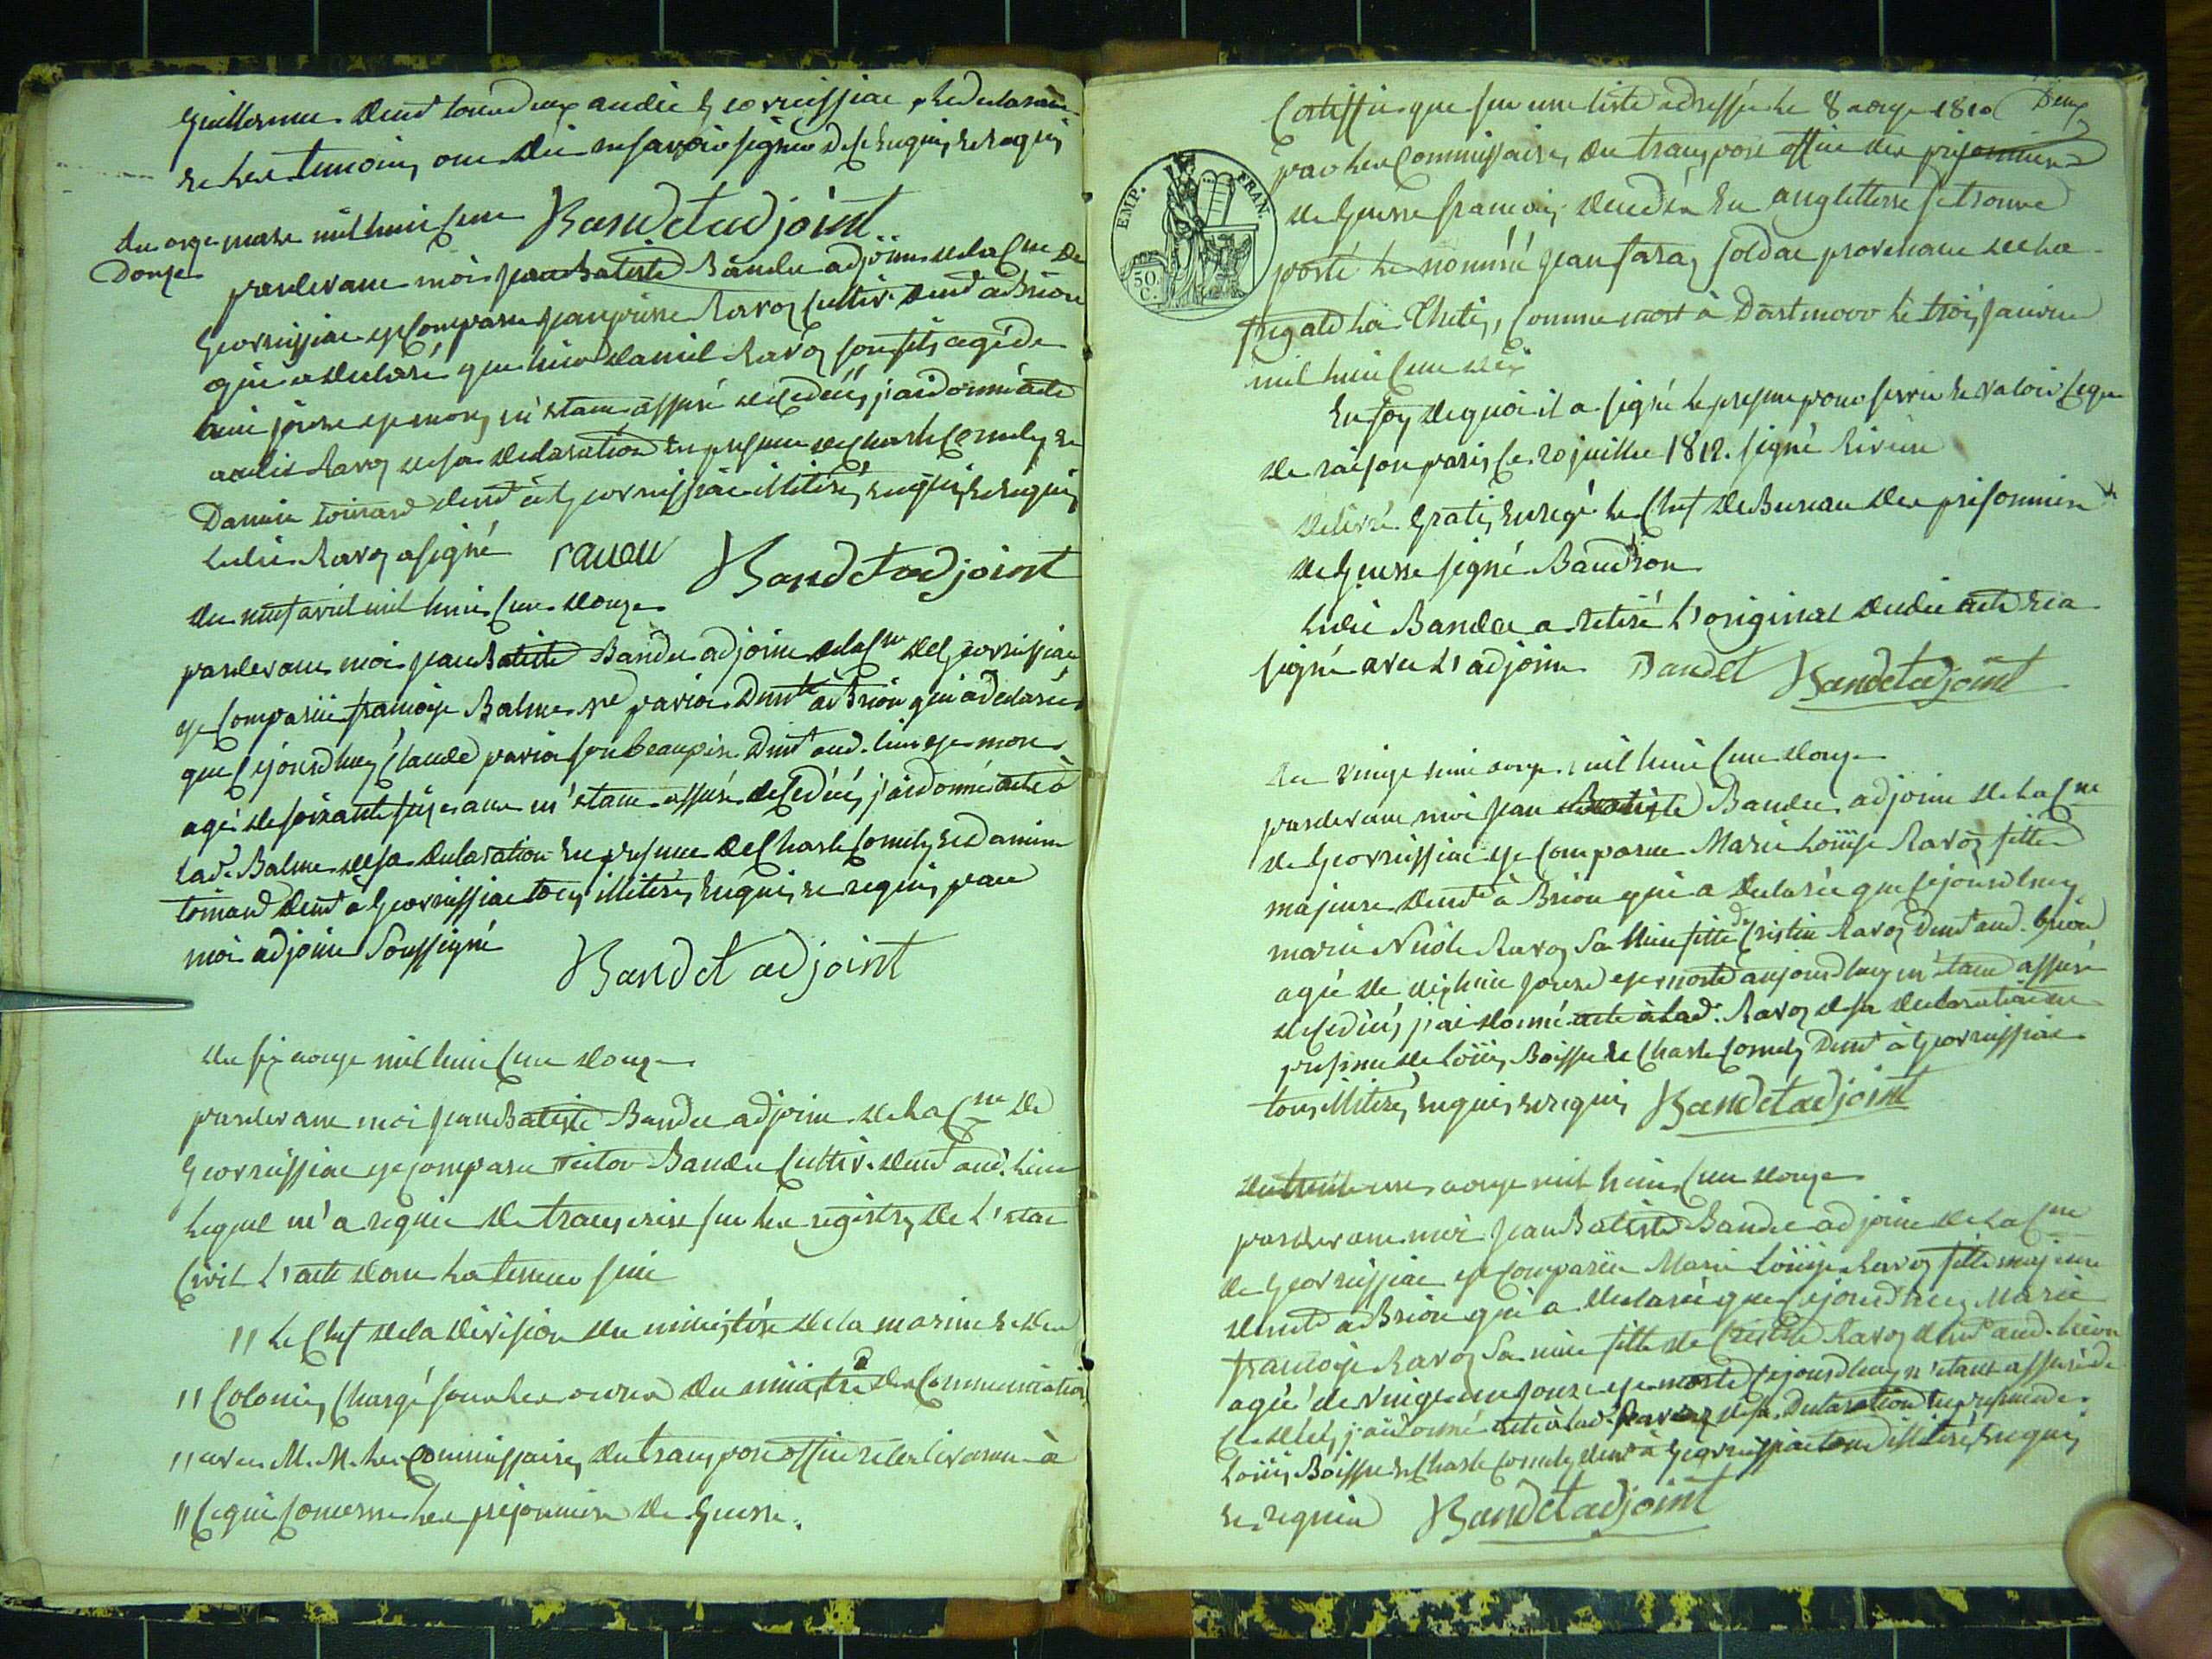 Guillermu demt tous deux audit Georreissiac
et les temoins ont dit ne savoir signer de ce enquis et requis
Bandet adjoint
du onze mars mil huit cent
douze
pardevant moi Jean Batiste Bandet adjoint de la Cne de
Georreissiac est comparu Jean pierre Ravoz cultivr demt a Brion
qui a déclaré que hier Daniel Ravoz son fils agé de
huit jours est mort, m'etant assuré du Cedéés j'ai donné acte
audit Ravoz de sa declaration en presence de Charle Comuly et
Damien toinard demt à Georreissiac illitirés enquis et requis
ledit Ravoz a signé
ravou Bandet adjoint
du neuf avril mil huit cent douze
pardevant moi Jean Batiste Bandet adjoint de la Cne de Georreissiac
est Comparüe francoise Balme ve pavioz demte à Brion qui a declarée
que cejourdhuy Claude pavioz son beaupère demt aud. lieu est mort
agé de soixante seize ans m'etant assuré de Cedéés j'ai donné acte à
lade Balme de sa declaration en presence de Charle Comuly et Damien
toinard demt à Georreissiac tous illitirés enquis et requis par
moi adjoint Soussigné
Bandet adjoint
du six aoust mil huit cent douze
pardevant moi Jean Batiste Bandet adjoint de la Cne de
Georreissiac est comparu Victor Bandet Cultivr demt aud. lieu
lequel m'a requis de transcrire sur les registres de l'etat
Civil l'acte dont la teneur suit
" le Chef de la division du ministére de la marine et des
" Colonies, Chargé sous les ordres du ministre des Communication
" avec M. M. les Commissaires du transport office et les livrance à
" ce qui Concerne les prisonniers de Guerre.
Deux
Certiffie que sur une liste adressée le 8 aoust 1810
par les Commissaires du transport office des prisonniers
de Guerre francois decedés en anglettere se trouve
porté le nommé Jean faraz soldat provenant de la
fregate la Thetis, Comme mort à Dartmoor le trois Janvier
mil huit cent dix
En foy de quoi il a signé le present pour servir et valoir ce que
de raison paris ce 20 juillet 1812. signé Riviere
delivré Gratis Enregé le Chef de Bureau des prisonniers
de Guerre signé Baudron
ledit Bandet a retiré l'original dudit acte et a
signé avec l'adjoint Bandet Bandet adjoint
du vingt huit aoust mil huit cent douze
pardevant moi Jean Batiste Bandet adjoint de la Cne
de Georreissiac est Comparue Marie Loüise Ravoz fille
majeure demte à Brion qui a declarée que cejourdhuy
marie Nicole Ravoz sa niece fille de Cristin Ravoz demt aud. Brion
agée de dixhuit Jours est morte aujourdhuy m'etant assuré
de Cedéés j'ai donné acte à lade Ravoz de sa declaration en
presence de Loüis Boisson et Charle Comuly demt à Georreissiac
tous illitirés enquis et requis Bandet adjoint
du trente un aoust mil huit cent douze
pardevant moi Jean Batiste Bandet adjoint de la Cne
de Georreissiac est Comparüe Marie Loüise Ravoz fille majeure
demte a Brion qui a declarée que cejourdhuy Marie
francoise Ravoz sa niece fille de Cristin Ravoz demt aud. Brion
agée de vingt un Jours est morte cejourdhuy m'etant assuré de
Cedéés j'ai donné acte à lade Ravoz de sa declaration en presence de
Loüis Boisson et Charle Comuly demt à Georreissiac tous illitirés enquis
et requis Bandet adjoint
EMP. FRAN.
50.
C.